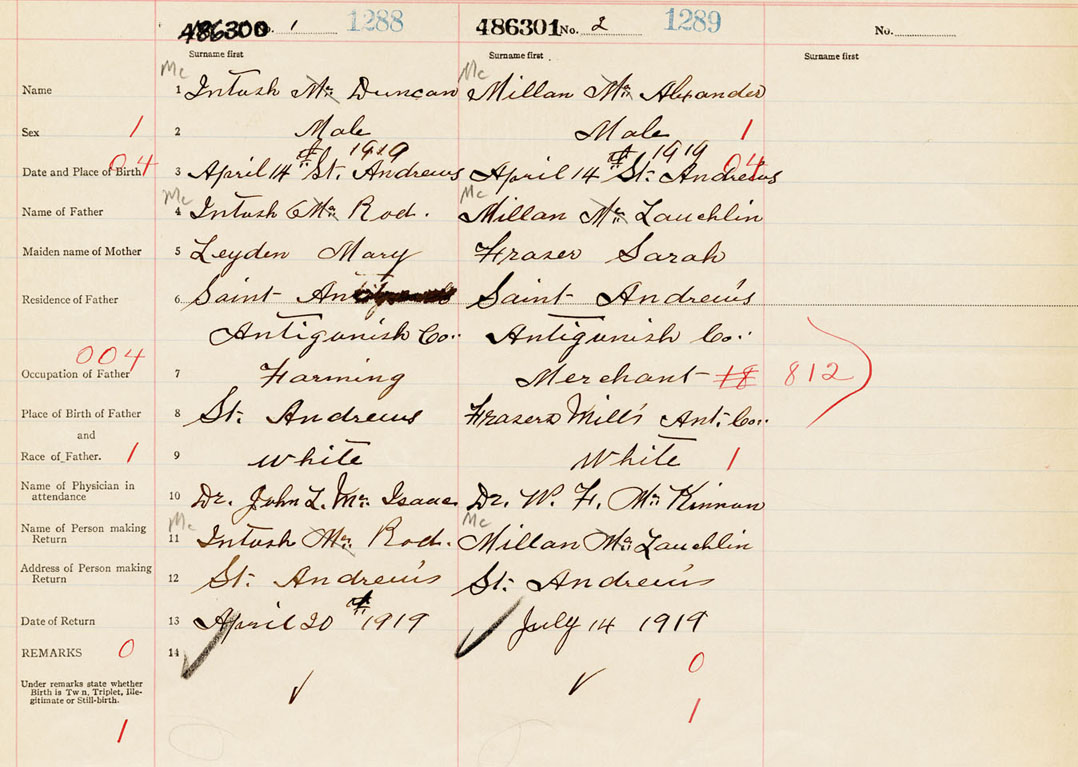 486300 No. 1 1288 486301 No. 2 1289 No.
Surname first Surname first Surname first
Mc Mc
Name 1 Intosh Mc Duncan Millan Mc Alexander
Sex 1 2 Male Male 1
th 1919 th 1919
Date and Place of Birth 04 3 April 14 St. Andrews April 14 St. Andrews 04
Mc Mc
Name of Father 4 Intosh Mc Rod. Millan Mc Lauchlin
Maiden name of Mother 5 Leyden Mary Fraser Sarah
Residence of Father 6 Saint Saint Andrew's
Antigonish Co. Antigonish Co.
004
Occupation of Father 7 Farming Merchant 18 812
Place of Birth of Father 8 St. Andrews Frasers Mill's Ant. Co.
and
Race of Father. 1 9 White White 1
Name of Physician in
attendance 10 Dr. John L. Mc Isaac Dr. W. F. Mc Kinnon
Mc Mc
Name of Person making
Return 11 Intosh Mc Rod. Millan Mc Lauchlin
Address of Person making
Return 12 St. Andrew's St. Andrew's
Date of Return 13 April 20th 1919 July 14 1919
REMARKS 0 14 0
Under remarks state whether
Birth is Twin, Triplet, Ille-
gitimate or Still-birth.
1 1